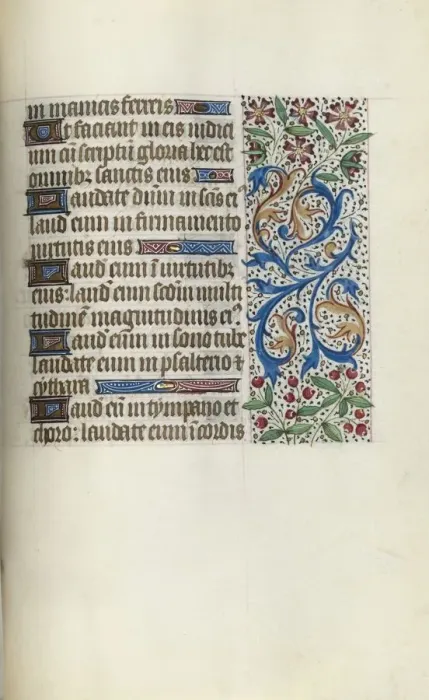 in manicis ferreis
Et faciant in eis iudici
um cū scriptū gloria hec est
omnibꝫ sanctis eius
Laudate dnm in scīs eiꝰ
laud eum in firmamento
uirtutis eius
Laud eum ī uirtutibꝫ
eius: laud eum scdm multi
tudinē magnitudinis eiꝰ
Laud eum in sono tube
laudate eum in psalterio ⁊
cythara
Laud eū in tympano et
choro: laudate eum ī cordis